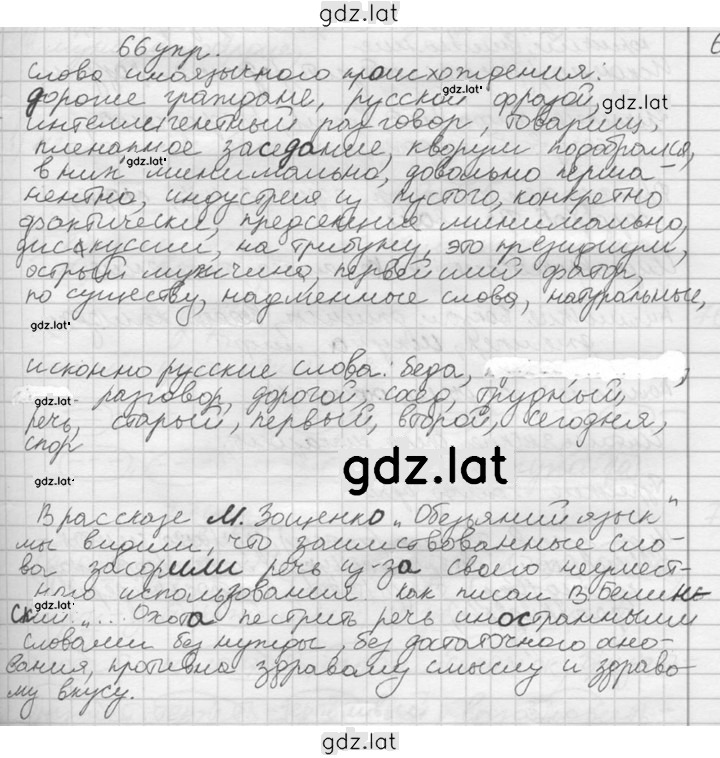 gdz.lat
66 упр.
Слова иноязычного происхождения:
gdz.lat
дорогие граждане, русской фразой,
gdz.lat
интеллигентный разговор, товарищ,
пленарное заседание, кворум подобрался,
gdz.lat
в них минимально, довольно перма-
нентно, индустрия из пустого, конкретно
фактически, минимально,
дискуссии, на трибуну, это президиум,
острый мужчина, первейший
по существу, надменные слова, натуральные,
gdz.lat
исконно русские слова: беда,
gdz.lat разговор, дорогой, сосед, трудный,
речь, старый, первый, второй, сегодня,
спор
gdz.lat
gdz.lat
В рассказе М. Зощенко „Обезьяний язык"
мы видим, что заимствованные сло-
ва засорили речь из-за своего неумест-
ного использования как писал В Белинс-
gdz.lat
ский „... Охота пестрить речь иностранными
словами без нужды, без достаточного осно-
вания, противна здравому смыслу и здраво-
му вкусу.
gdz.lat